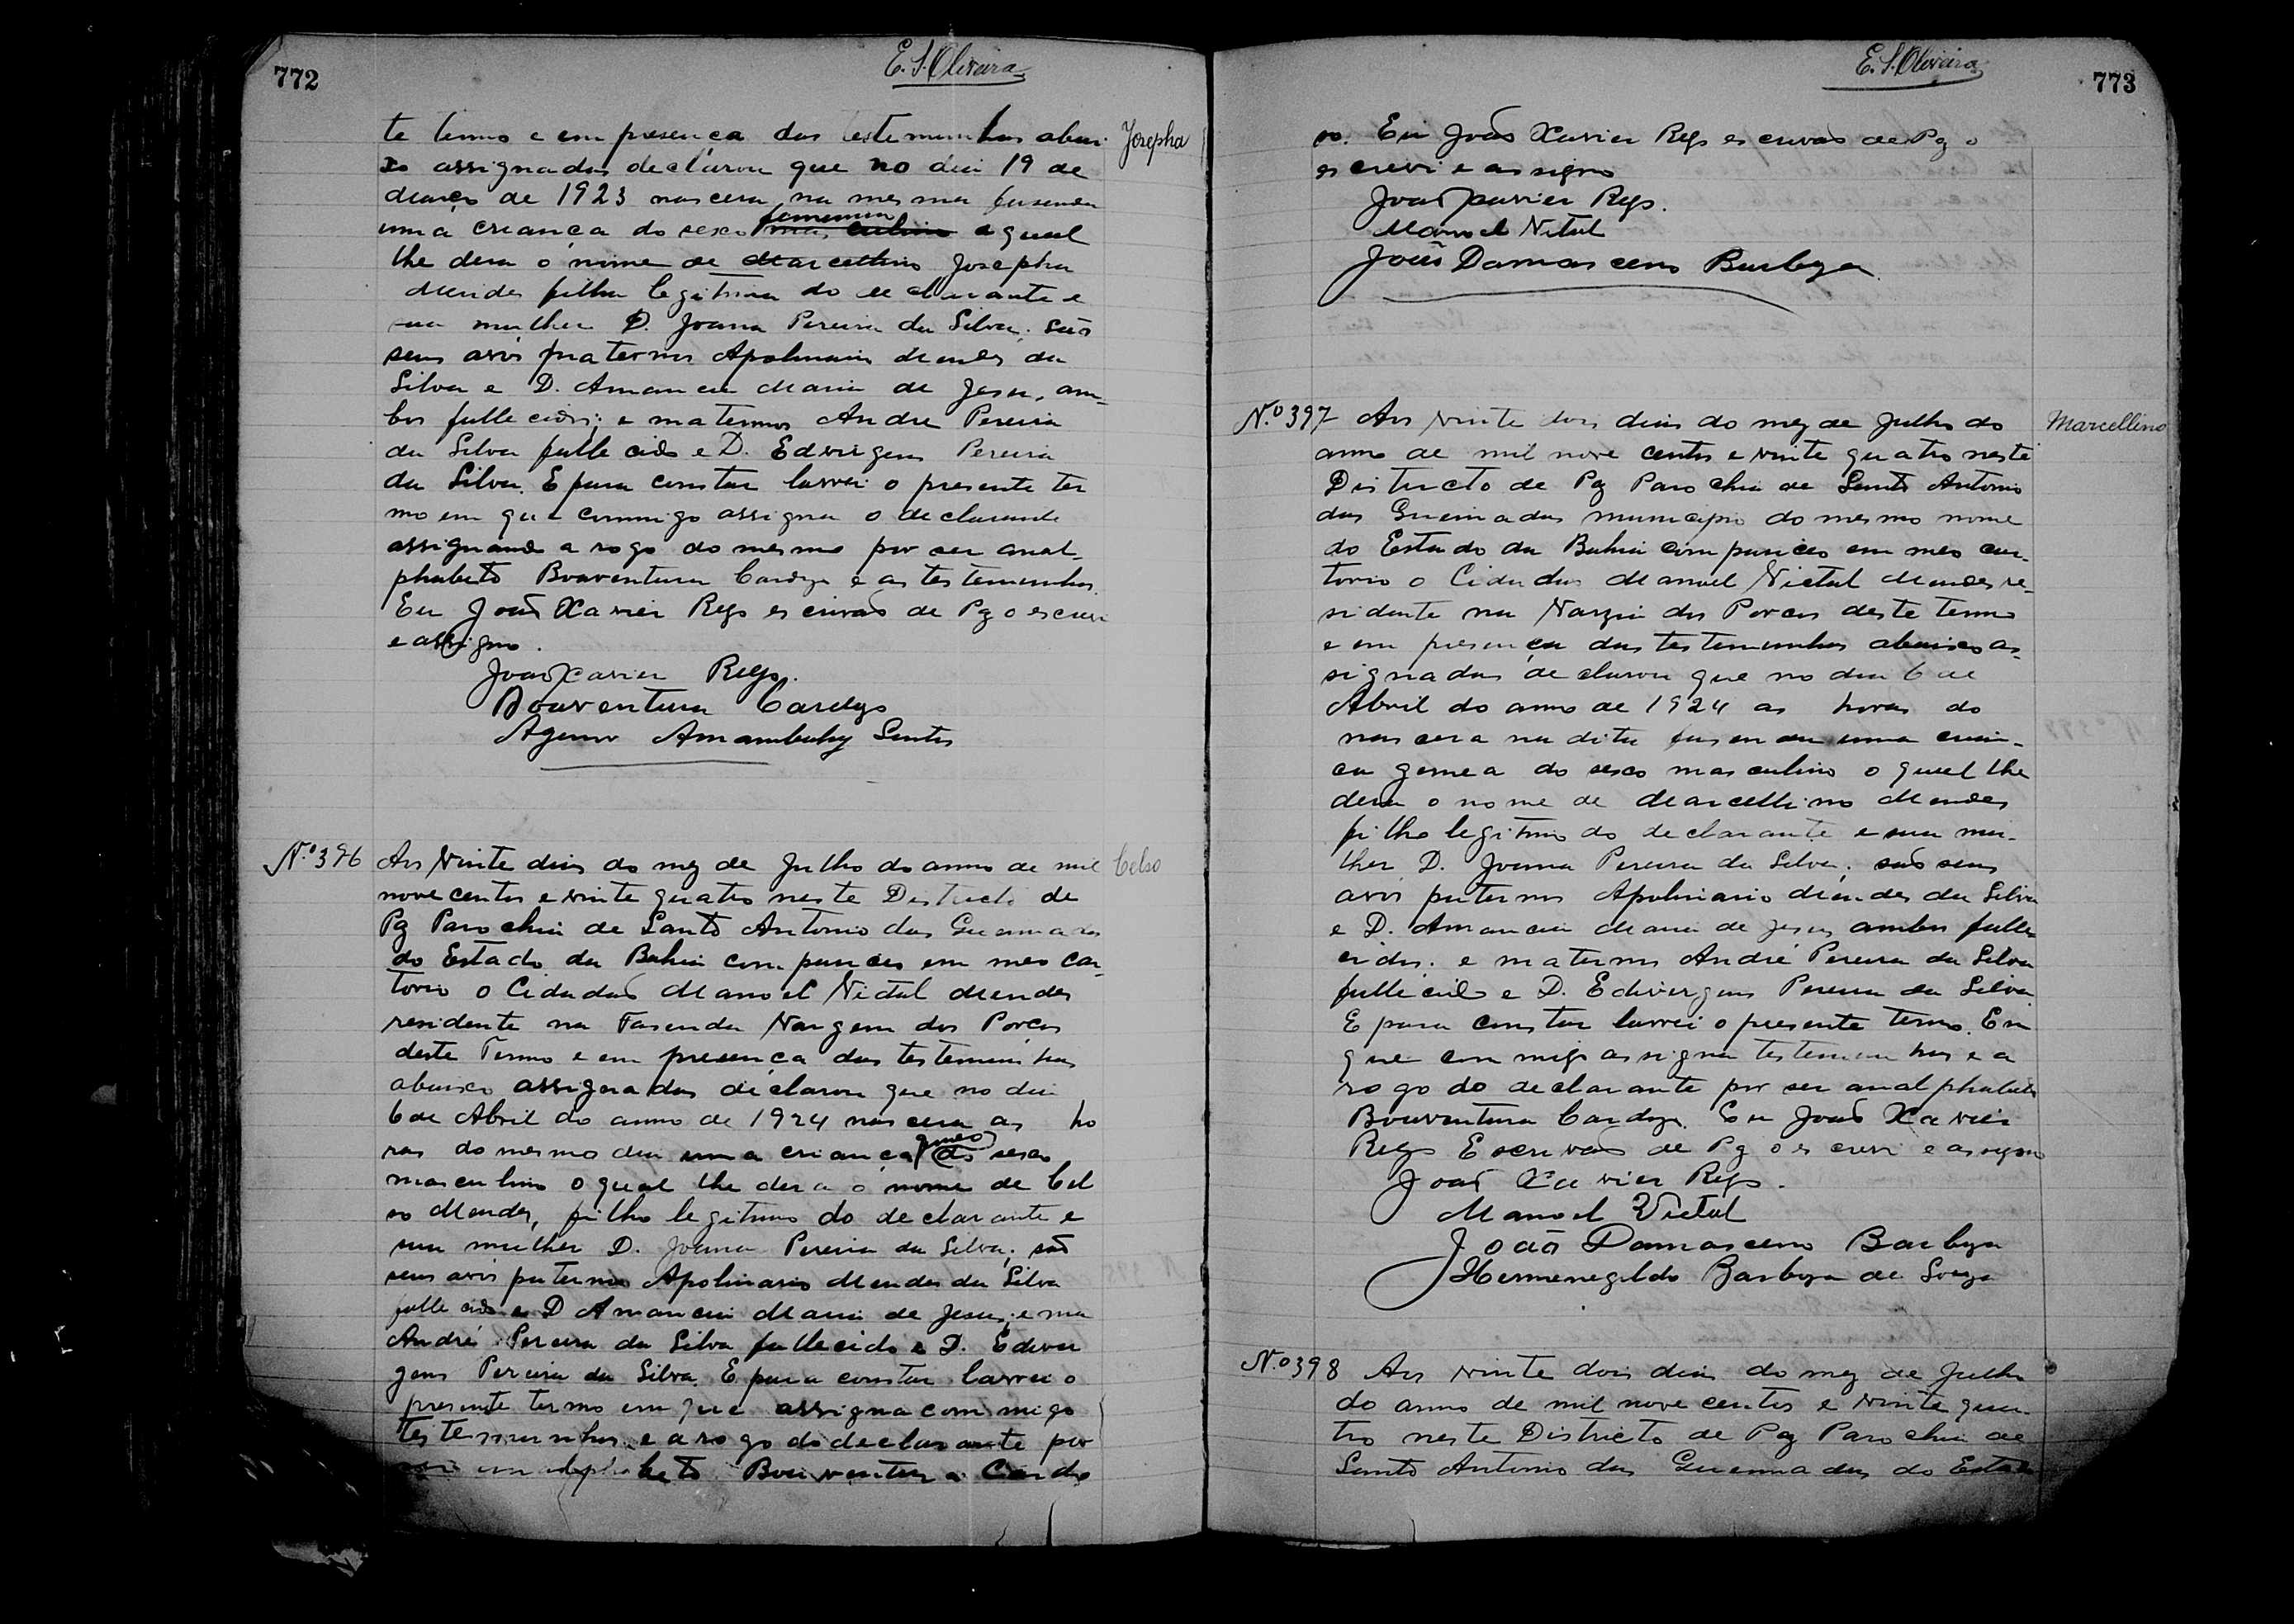 772
E. S. Oliveira
te termo e em presença das testemunhas abai
xo assignadas declarou que no dia 19 de
Março de 1923 nascera na mesma fasenda
uma criança do sexo masculino feminino a qual
lhe dera o nome de Marcellino Josepha
Mendes filha legitima do declarante e
sua mulher D. Joana Pereira da Silva. São
seus avós paternos Apolinario Mendes da
Silva e D. Amancia Maria de Jesus, am-
bos fallecidos; e maternos Andre Pereira
da Silva fallecido e D. Edvirgens Pereira
da Silva. E para constar lavrei o presente ter
mo em que commigo assigna o declarante
assignando a rogo do mesmo por ser anal-
phabeto Boaventura Cardozo e as testemunhas.
Eu João Xavier Rego escrivão de Pz o escrevi
e assigno.
João Xavier Rego.
Boaventura Cardozo
Agenor Santos
Josepha
Nº 396 Aos Vinte dias do mez de Julho do anno de mil
nove centos e vinte quatro neste Destricto de
Pz Parochia de Santo Antonio das Queimadas
do Estado da Bahia compareceo em meo car-
torio o Cidadão Manoel Vidal Mendes
residente na Fasenda Vargem dos Porcos
deste Termo e em presença das testemunhas
abaixo assignadas declarou que no dia
6 de Abril do anno de 1924 nascera as ho
ras do mesmo dia uma criança gemeo do sexo
masculino o qual lhe dera o nome de Cel
so Mendes, filho legitimo do declarante e
sua mulher D. Joana Pereira da Silva; são
seus avós paternos Apolinario Mendes da Silva
fallecido e D Amancia Maria de Jesus; e ma
André Pereira da Silva fallecido e D. Edvir
gens Pereira da Silva. E para constar lavrei o
presente termo em que assigna commigo
testemunhas e a rogo do declarante por
ser analphabeto Boaventura Cardo
Celso
E. S. Oliveira
773
so. Eu João Xavier Rego escrivão de Pz o
escrevi e assigno
João Xavier Rego.
Manoel Vital
João Damasceno Barboza
Nº 397 Aos vinte dois dias do mez de Julho do
anno de mil nove centos e vinte quatro neste
Districto de Pz Parochia de Santo Antonio
das Queimadas municipio do mesmo nome
do Estado da Bahia compareceo em meo car-
torio o Cidadão Manoel Victal Mendes re-
sidente na Varzia dos Porcos deste termo
e em presença das testemunhas abaixo as-
signadas declarou que no dia 6 de
Abril do anno de 1924 as horas do
nascera na dita fasenda uma crian-
ça gemea do sexo masculino o qual lhe
dera o nome de Marcellino Mendes
filho legitimo do declarante e sua mu-
lher D. Joanna Pereira da Silva; são seus
avós paternos Apolinario Mendes da Silva
e D. Amancia Maria de Jesus ambos falle-
cidos. e maternos André Pereira da Silva
fallecido e D. Edvirgens Pereira da Silva.
E para constar lavrei o presente termo. Em
que commigo assigna testemunhas e a
rogo do declarante por ser analphabeto
Boaventura Cardozo. Eu João Xavier
Rego Escrivão de Pz o escrevi e assigno
João Xavier Rego.
Manoel Victal
João Damasceno Barboza
Hermenegildo Barboza de Souza
Marcellino
Nº 398 Aos vinte dois dias do mez de Julho
do anno de mil nove centos e vinte qua-
tro neste Districto de Paz Parochia de
Santo Antonio das Queimadas do Estado